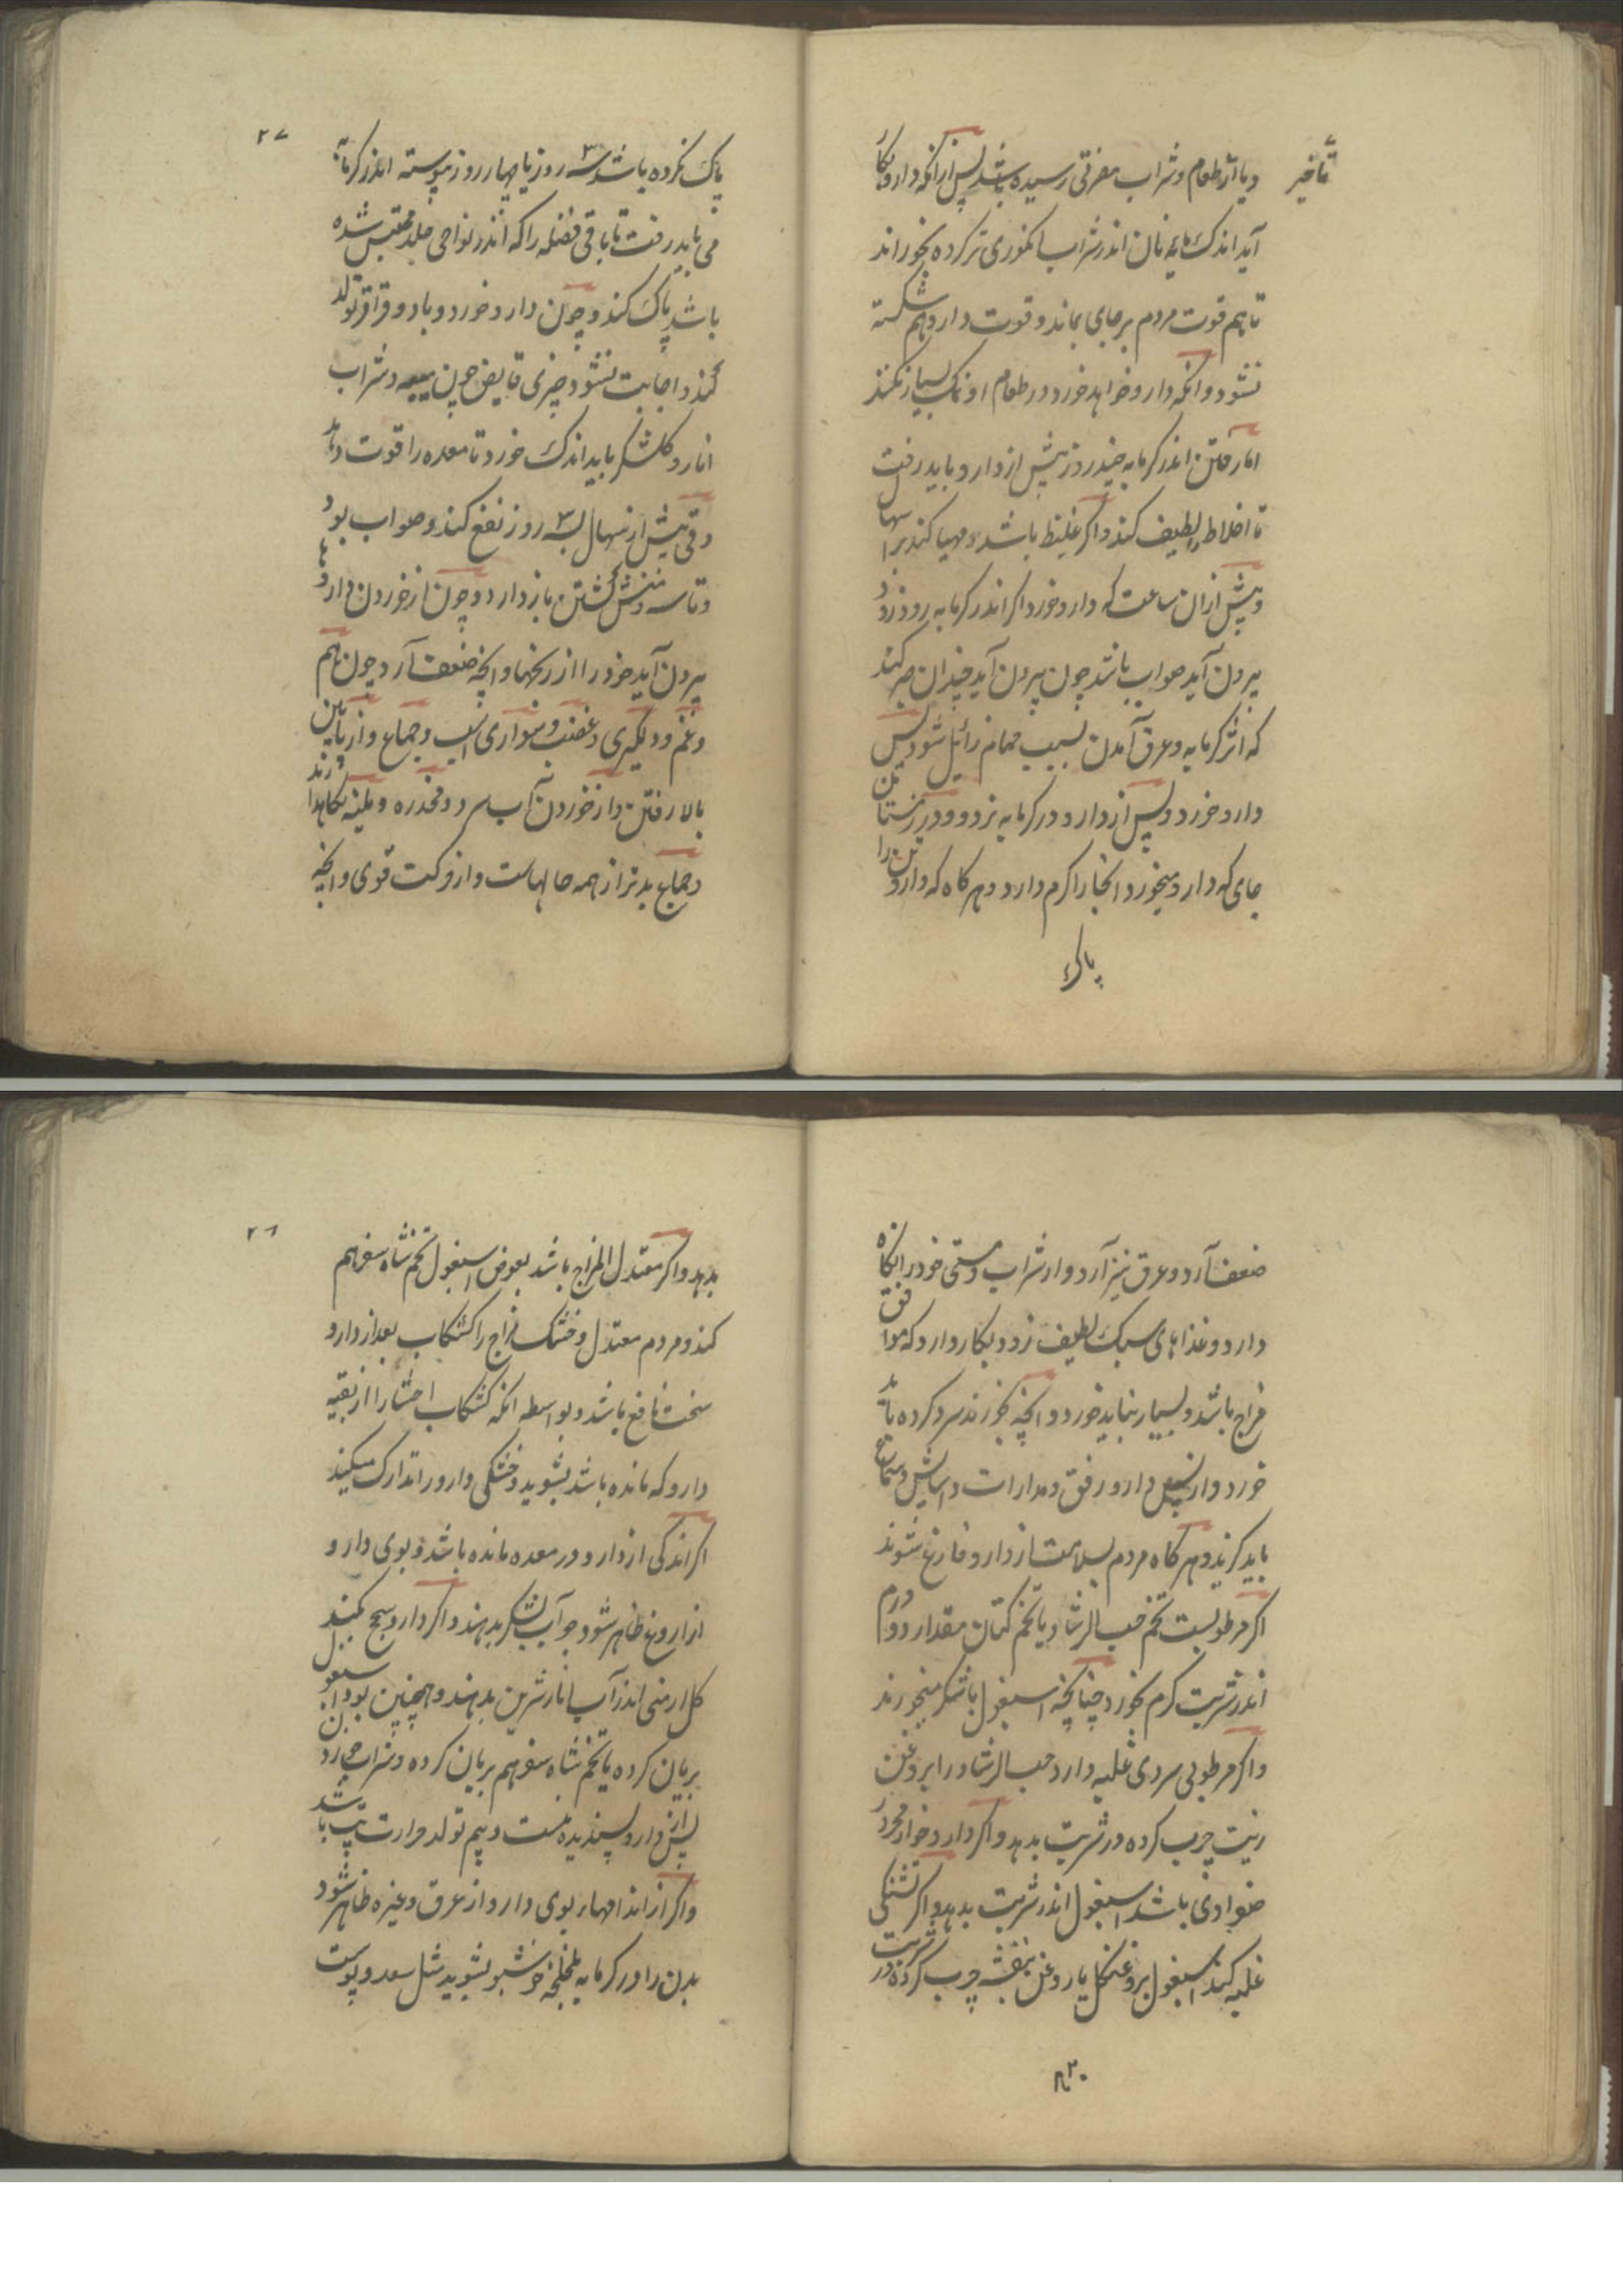 تأخیر
و یا از طعام و شراب مضرتی رسیده باشد پس از انکه دارو بکار
آید اندک مایه نان اندر شراب انکوری تر کرده بخوراند
تا هم قوت مردم بر جای بماند و قوت دارو هم شکسته
نشود و انکه دارو خواهد خورد در طعام او نمک بسیار نکنند
اما رفتن اندر کرمابه چند روز پیش از دارو باید رفت
تا اخلاط لطیف کند و اکر غلیظ باشد و مهیا کند بر اسهال
و پیش ازان ساعت که دارو خورد اکر اندر کرمابه رود و زود
بیرون آید صواب باشد چون بیرون آید چندان صبر کند
که اثر کرمابه و عرق آمدن بسبب حمام زائیل شود پس
دارو خورد و پس از دارو در کرمابه نرود و در زمستان
جای که دارو میخورد انجا را کرم دارد و هر کاه که دارو تن را
پاک
۲۷
پاک نکرده باشد سه روز یا چهار روز پیوسته اندر کرمابه
می باید رفت تا باقی فضله را که اندر نواحی جلد محتبس شده
باشد پاک کند و چون دارو خورد و باد و قراقر تولد
کند و اجابت نشود چیزی قابض چون میبه و شراب
انار و کلشکر باید اندک خورد تا معده را قوت دهد
و قی پیش از اسهال بسه روز نفع کند و صواب بود
و تاسه و منش کشتن باز دارد و چون از خوردن داروها
بیرون آید خود را از رنجها و انچه ضعف آرد چون هم
و غم و دلکیری و غضب و سواری اسب و جماع و از پائین
بالا رفتن و از خوردن آب سرد و مخدره و ملینه نکاهدارند
و جماع بدتر از همه حالهاست و از حرکت قوی و انچه
ضعف آرد و عرق نیز آرد و از شراب و مستی خود را نکاه
دارد و غذاهای سبک لطیف زود بکار دارد که موافق
مزاج باشد و بسیار نباید خورد و انچه بخورند سرد کرده باید
خورد و از پس دارو رفق و مدارات و آسایش و سماع
باید کرد و هر کاه مردم بسلامت از دارو فارغ شوند
اکر مرطوبست تخم حب الرشاد یا تخم کتان مقدار دو درم
اندر شربت کرم بخورد چنانچه اسبغول با شکر میخورند
و اکر مرطوبی سردی غلبه دارد حب الرشاد را بروغن
زیت چرب کرده در شربت بدهد و اکر دارو خوار محرور
صفرادی باشد اسبغول اندر شربت بدهد و اکر تشنکی
غلبه کند اسبغول بروغن کل یا روغن بنفشه چرب کرده در شربت
۲۸
بدهد و اکر معتدل المزاج باشد بعوض اسبغول تخم شاه سفرهم
کند و مردم معتدل و خشک مزاج را کشکاب بعد از دارو
سخت نافع باشد و بواسطه انکه کشکاب احشا را از بقیه
دارو که مانده باشد بشوید و خشکی دارو را تدارک میکند
اکر اندکی از دارو در معده مانده باشد و بوی دارو
از اروغ ظاهر شود جو آب بشکر بدهند و اکر دارو سحج کند
کل ارمنی اندر آب انار شرین بدهند و همچنین بود اسبغول
بریان کرده یا تخم شاه سفرهم بریان کرده و شراب خوردن
پس از دارو پسندیده نیست و بیم تولد حرارت تب باشد
و اکر از اندامها، بوی دارو از عرق و غیره ظاهر شود
بدن را در کرمابه بلخلخه خوشبو بشوید مثل سعد و پوست